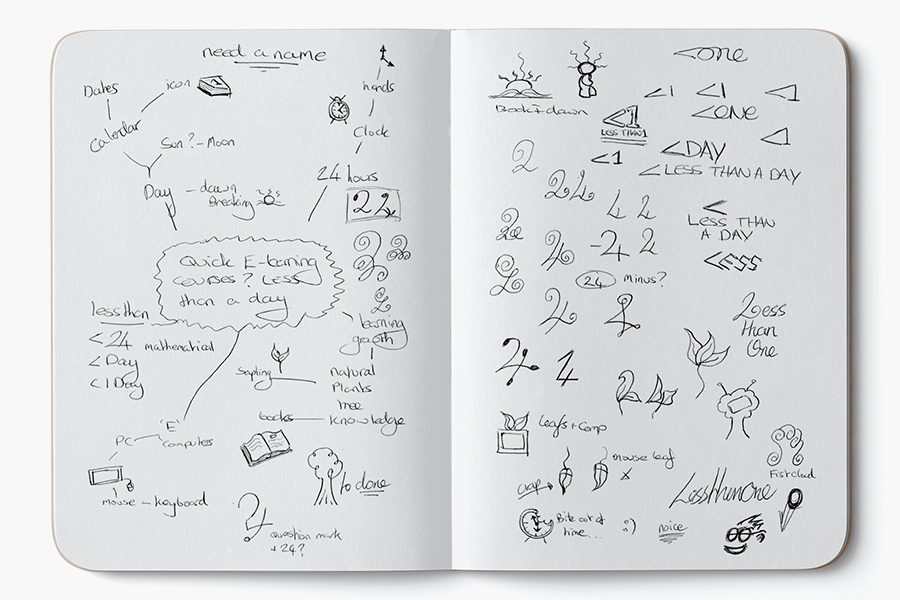 need a name
Dates
icon
hands
Calendar
Sun? - Moon
Clock
Day - dawn
Breaking
24 hours
24
Quick E-learning
courses? LESS
than a day
less than
< 24 mathematical
< Day
< 1 Day
learning
growth
Sapling
natural
Plants
tree
books
knowledge
'E'
PC
Computers
mouse - keyboard
to done
question mark
+ 24?
<one
Book + dawn
<1
<1
<1
LESS THAN 1
<ONE
<1
<DAY
< LESS THAN A DAY
2
24
4
2
<
LESS THAN
A DAY
24
-24
2
<ESS
24
minus?
24
Less
than
One
24
24
24
Leafs + Comp
mouse leaf
x
crap
Fist cloud
LessThenOne
Bite out of
time...
:)
noice